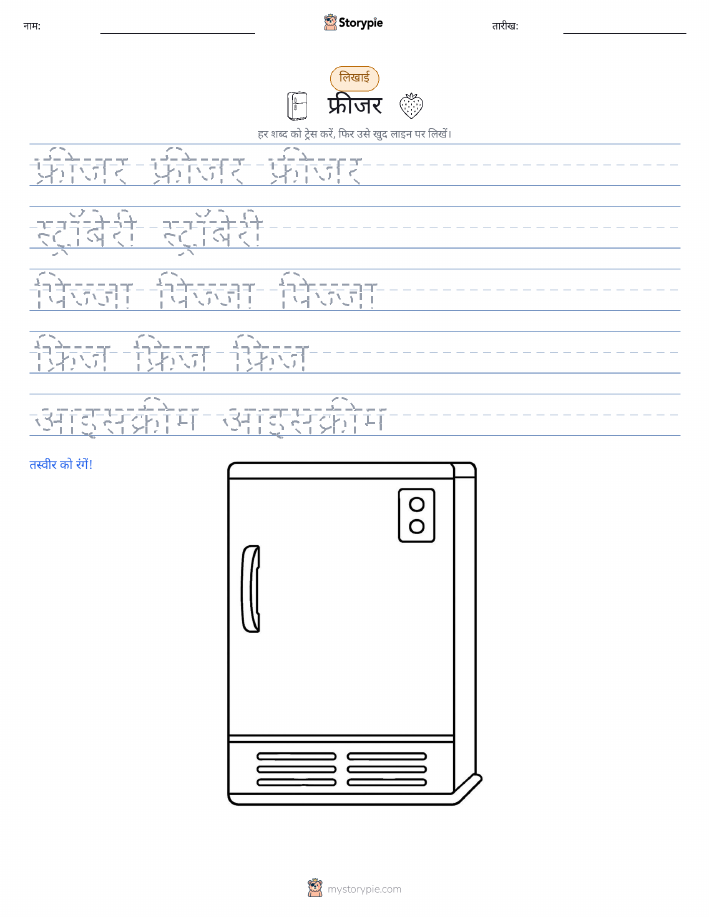 नाम: Storypie तारीख:
लिखाई
फ्रीजर
हर शब्द को ट्रेस करें, फिर उसे खुद लाइन पर लिखें।
फ्रीजर फ्रीजर फ्रीजर
स्ट्रॉबेरी स्ट्रॉबेरी
पिज्जा पिज्जा पिज्जा
फ्रिज फ्रिज फ्रिज
आइसक्रीम आइसक्रीम
तस्वीर को रंगें!
mystorypie.com